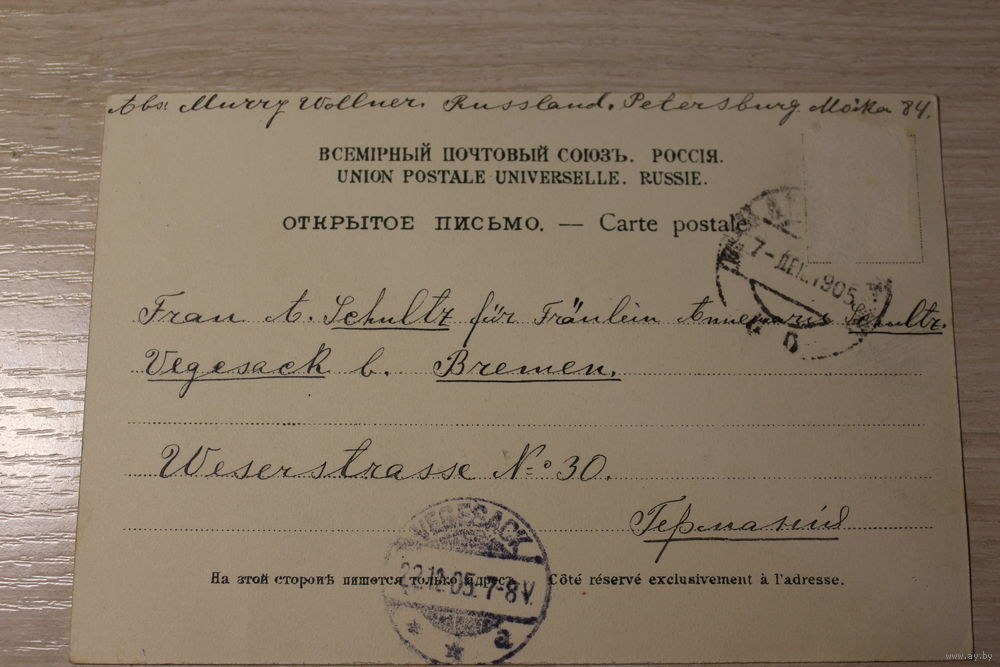 Abs: Murry Wollner. Russland. Petersburg Moika 84.
ВСЕМІРНЫЙ ПОЧТОВЫЙ СОЮЗЪ. РОССІЯ.
UNION POSTALE UNIVERSELLE. RUSSIE.
ОТКРЫТОЕ ПИСЬМО. — Carte postale
7-ДЕК.1905
Frau A. Schultz für Fräulein Annemarie Schultz.
Vegesack b. Bremen.
Weserstrasse No 30.
Германія
VEGESACK
22.12.05.7-8V.
* * a
На этой сторонѣ пишется только адресъ. Côté réservé exclusivement à l'adresse.
www.ay.by